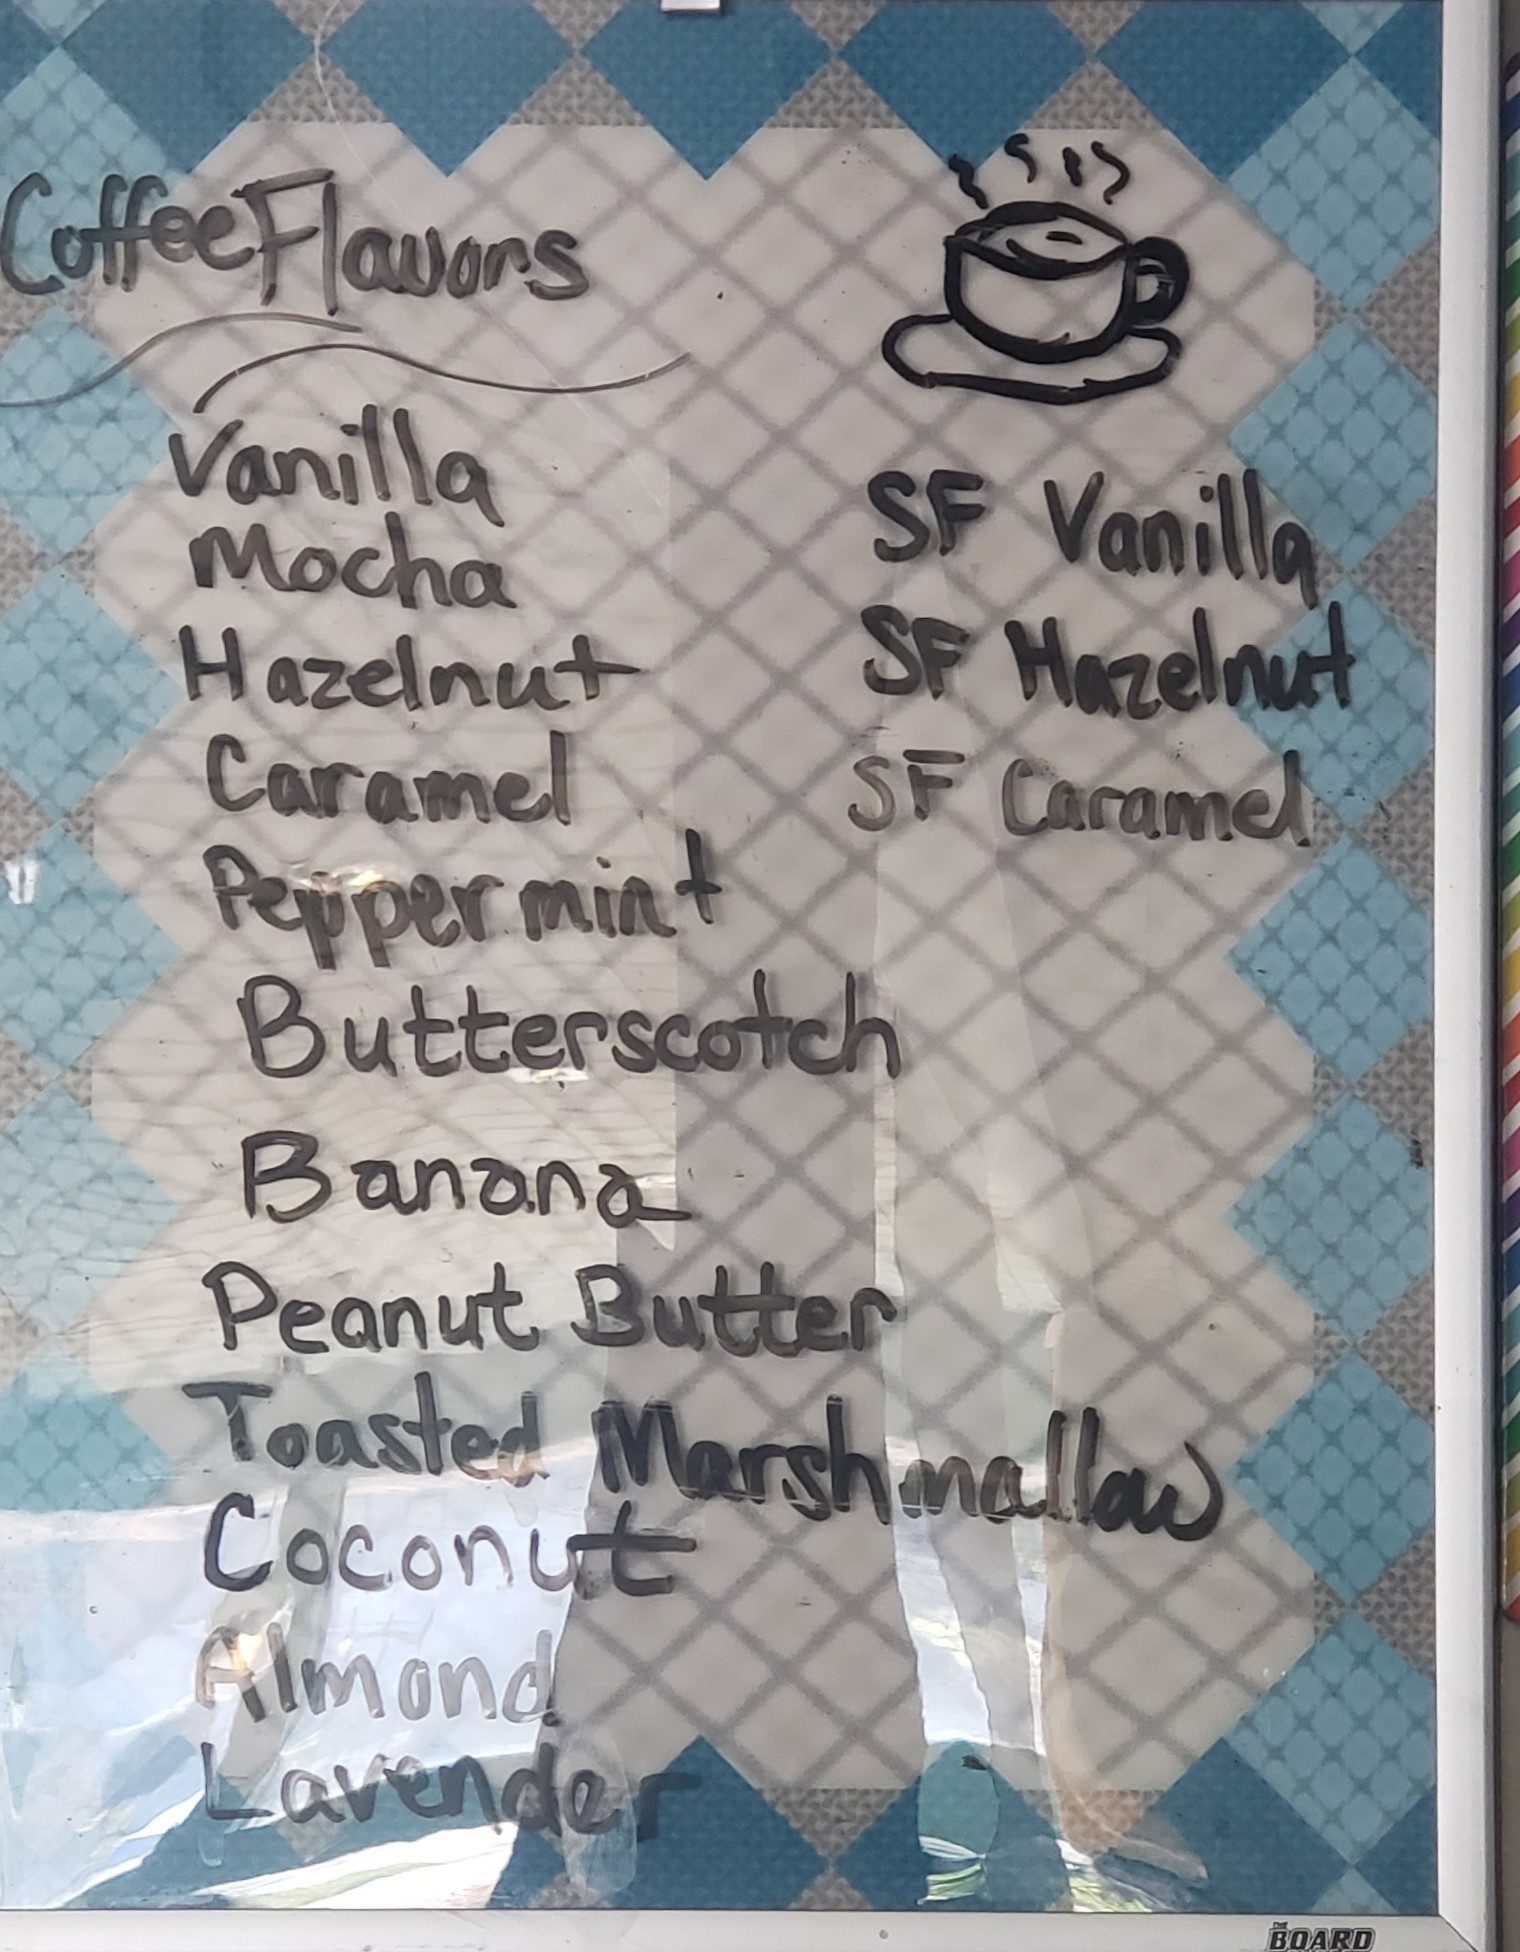 Coffee Flavors
Vanilla
Mocha
Hazelnut
Caramel
Peppermint
Butterscotch
Banana
Peanut Butter
Toasted Marshmallow
Coconut
Almond
Lavender
SF Vanilla
SF Hazelnut
SF Caramel
THE BOARD